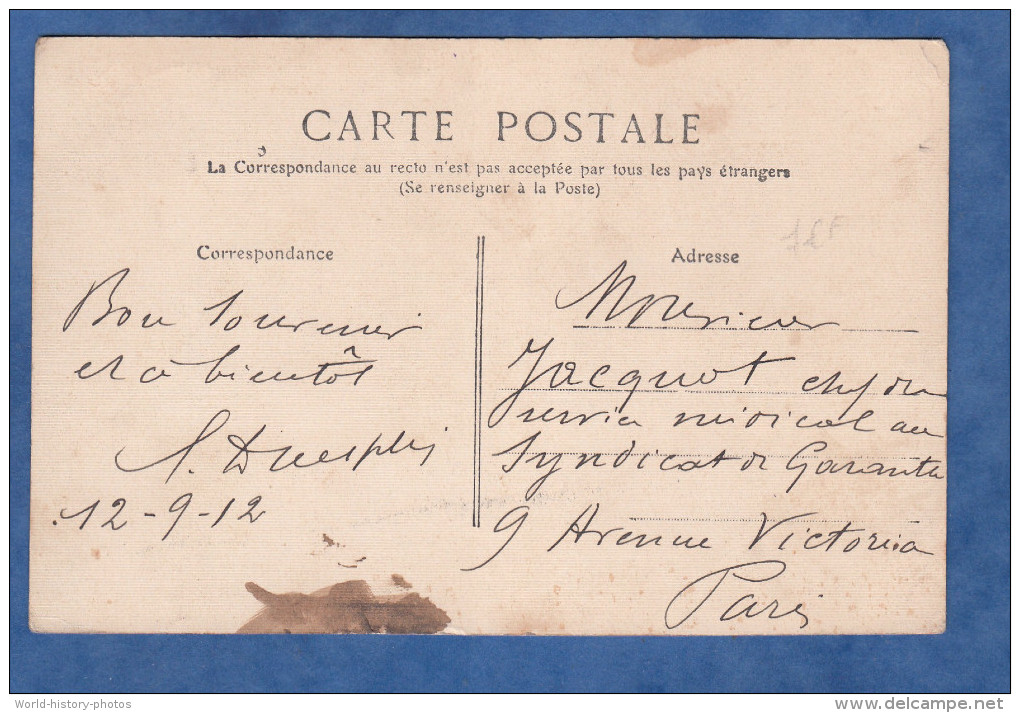 CARTE POSTALE
La Correspondance au recto n'est pas acceptée par tous les pays étrangers
(Se renseigner à la Poste)
Correspondance
Adresse
Bon souvenir
et à bientôt
12-9-12
Monsieur
Jacquot chef du
service médical au
Syndicat de Garantie
9 Avenue Victoria
Paris
World-history-photos
www.delcampe.net